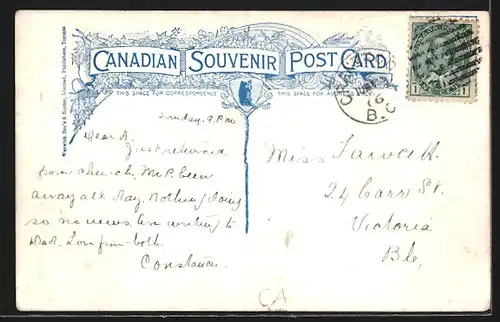 CANADIAN SOUVENIR POST CARD
THIS SPACE FOR CORRESPONDENCE
THIS SPACE FOR
Warwick Bro's & Rutter, Limited, Publishers, Toronto
B.C.
1 1
Sunday. 9. P.M.
Dear A.
Just returned
from church. Mr P. been
away all day. Nothing doing
so no news. Am writing to
Love from both.
Constance.
Miss Fawcett
24 Carr St.
Victoria
B.C.
CA